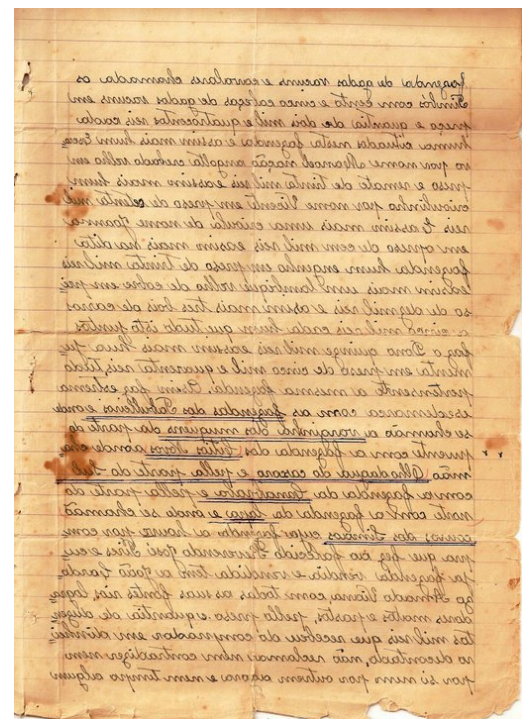 fazenda de gados vacuns e cavalares chamada os
com cento e cinco cabeças de gados vacuns em
preço e quantia de dois mil e quatrocentos reis cada
huma cituadas nesta fazenda e assim mais hum Escra
vo por nome Manoel nação angolla velho em
preso e remate de trinta mil reis e assim mais hum
crioulinho por nome Vicente em preso de setenta mil
reis E assim mais uma de nome Joanna
em o preso de cem mil reis e asim mais na dita
fazenda hum engenho em preso de trinta mil reis
easim mais um lambique velho de cobre em pre
so de dez mil reis e asim mais três bois de carros
a cinco mil reis cada hum que tudo isto juntos
faz o quinze mil reis easim mais hua ju
menta em preso de cinco mil e quarenta reis, tudo
pertensente a mesma fazenda. Asim faz estrema
com as fazendas dos Tabolleiros e onde
se chamão a varginha dos da parte do
puente com a fazenda dos aonde cha
mão Olhodagua do e pella parte do Sul
com a fazenda do e pella parte do
norte com a fazenda da Lapa e onde se chamão
dos Simões cuja fazenda a houve por com
pra que fez ao Reverendo José Pires e cu
ja fazenda vendia e vendida têm a João
Amado Viana com todas as suas fontes, rios, logra
dores, montes, e pastos, pello preso e quantia de
tos mil reis que recebeu do comprador em dinhei
ro decontado, não reclamar nem contradizer nem
por si nem por outrem agora e nem em tempo algum